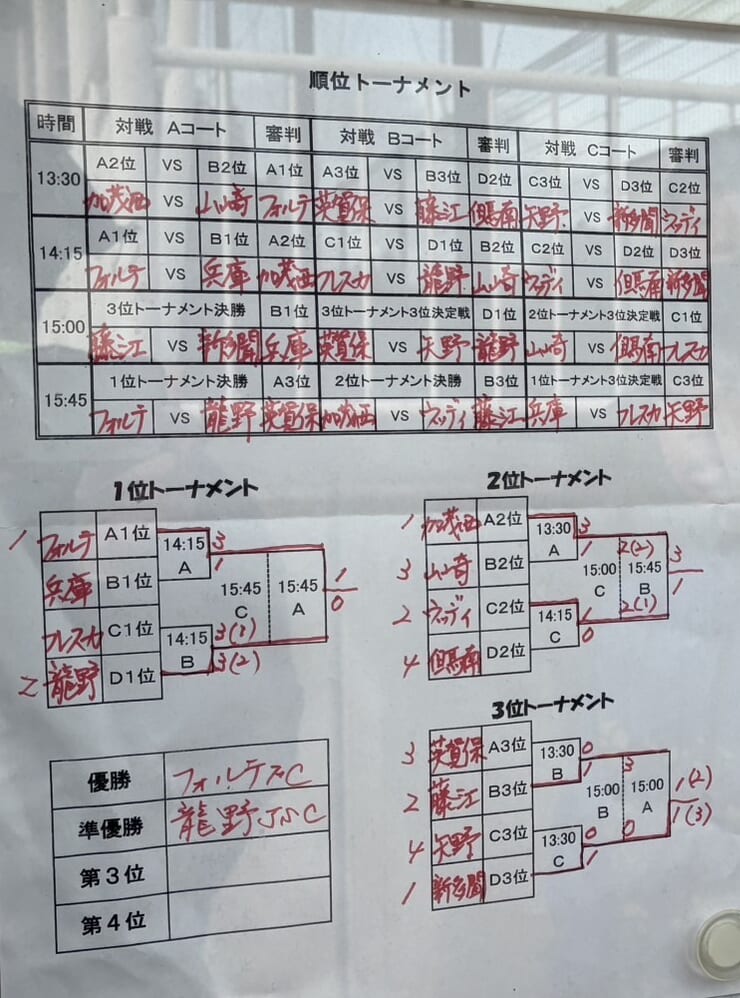 順位トーナメント
時間 対戦 Aコート 審判 対戦 Bコート 審判 対戦 Cコート 審判
13:30 A2位 VS B2位 A1位 A3位 VS B3位 D2位 C3位 VS D3位 C2位
加茂西 VS 山崎 フォルテ 英賀保 VS 藤江 但馬南 矢野 VS 新多聞 ウッディ
14:15 A1位 VS B1位 A2位 C1位 VS D1位 B2位 C2位 VS D2位 D3位
フォルテ VS 兵庫 加茂西 フレスカ VS 龍野 山崎 ウッディ VS 但馬南 新多聞
15:00 3位トーナメント決勝 B1位 3位トーナメント3位決定戦 D1位 2位トーナメント3位決定戦 C1位
藤江 VS 新多聞 兵庫 英賀保 VS 矢野 龍野 山崎 VS 但馬南 フレスカ
15:45 1位トーナメント決勝 A3位 2位トーナメント決勝 B3位 1位トーナメント3位決定戦 C3位
フォルテ VS 龍野 英賀保 加茂西 VS ウッディ 藤江 兵庫 VS フレスカ 矢野
1位トーナメント
1 フォルテ A1位 14:15 A 3 1
兵庫 B1位
フレスカ C1位 14:15 B 3(1) 3(2)
2 龍野 D1位
15:45 C 15:45 A 1 0
2位トーナメント
1 加茂西 A2位 13:30 A 3 1
3 山崎 B2位
2 ウッディ C2位 14:15 C 1 0
4 但馬南 D2位
2(2) 2(1) 15:00 C 15:45 B 3 1
3位トーナメント
3 英賀保 A3位 13:30 B 0 1
2 藤江 B3位
4 矢野 C3位 13:30 C 0 1
1 新多聞 D3位
3 0 15:00 B 15:00 A 1(2) 1(3)
優勝 フォルテFC
準優勝 龍野JSC
第3位
第4位